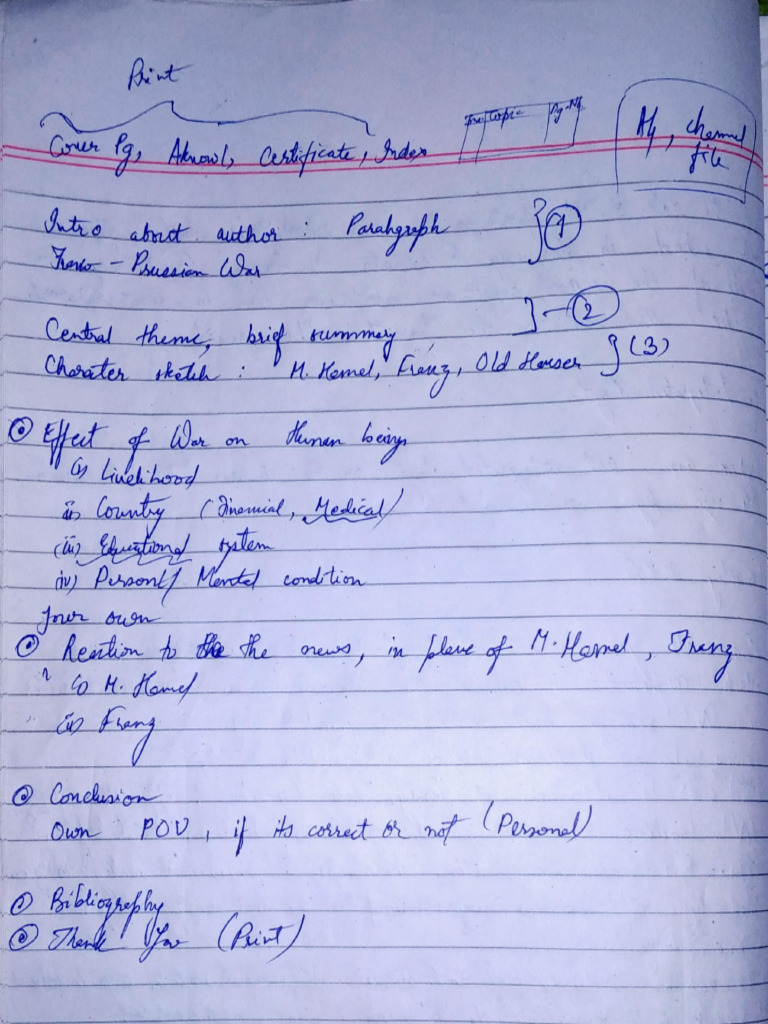 Print
Cover Pg, Aknowl, Certificate, Index
Topic Pg. No.
A4, channel
file
Intro about author : Parahgraph } 1
Franco - Prussian War
Central theme, brief summary } - 2
Charater sketch : M. Hamel, Franz, Old Hauser } (3)
Effect of War on Human beings
(i) Livelihood
ii) Country (Financial, Medical)
(iii) Educational system
iv) Personl/ Mental condition
Your own
Reaction to the the news, in place of M. Hamel, Franz
i) M. Hamel
ii) Franz
Conclusion
Own POV, if its correct or not (Personal)
Bibliography
Thank You (Print)